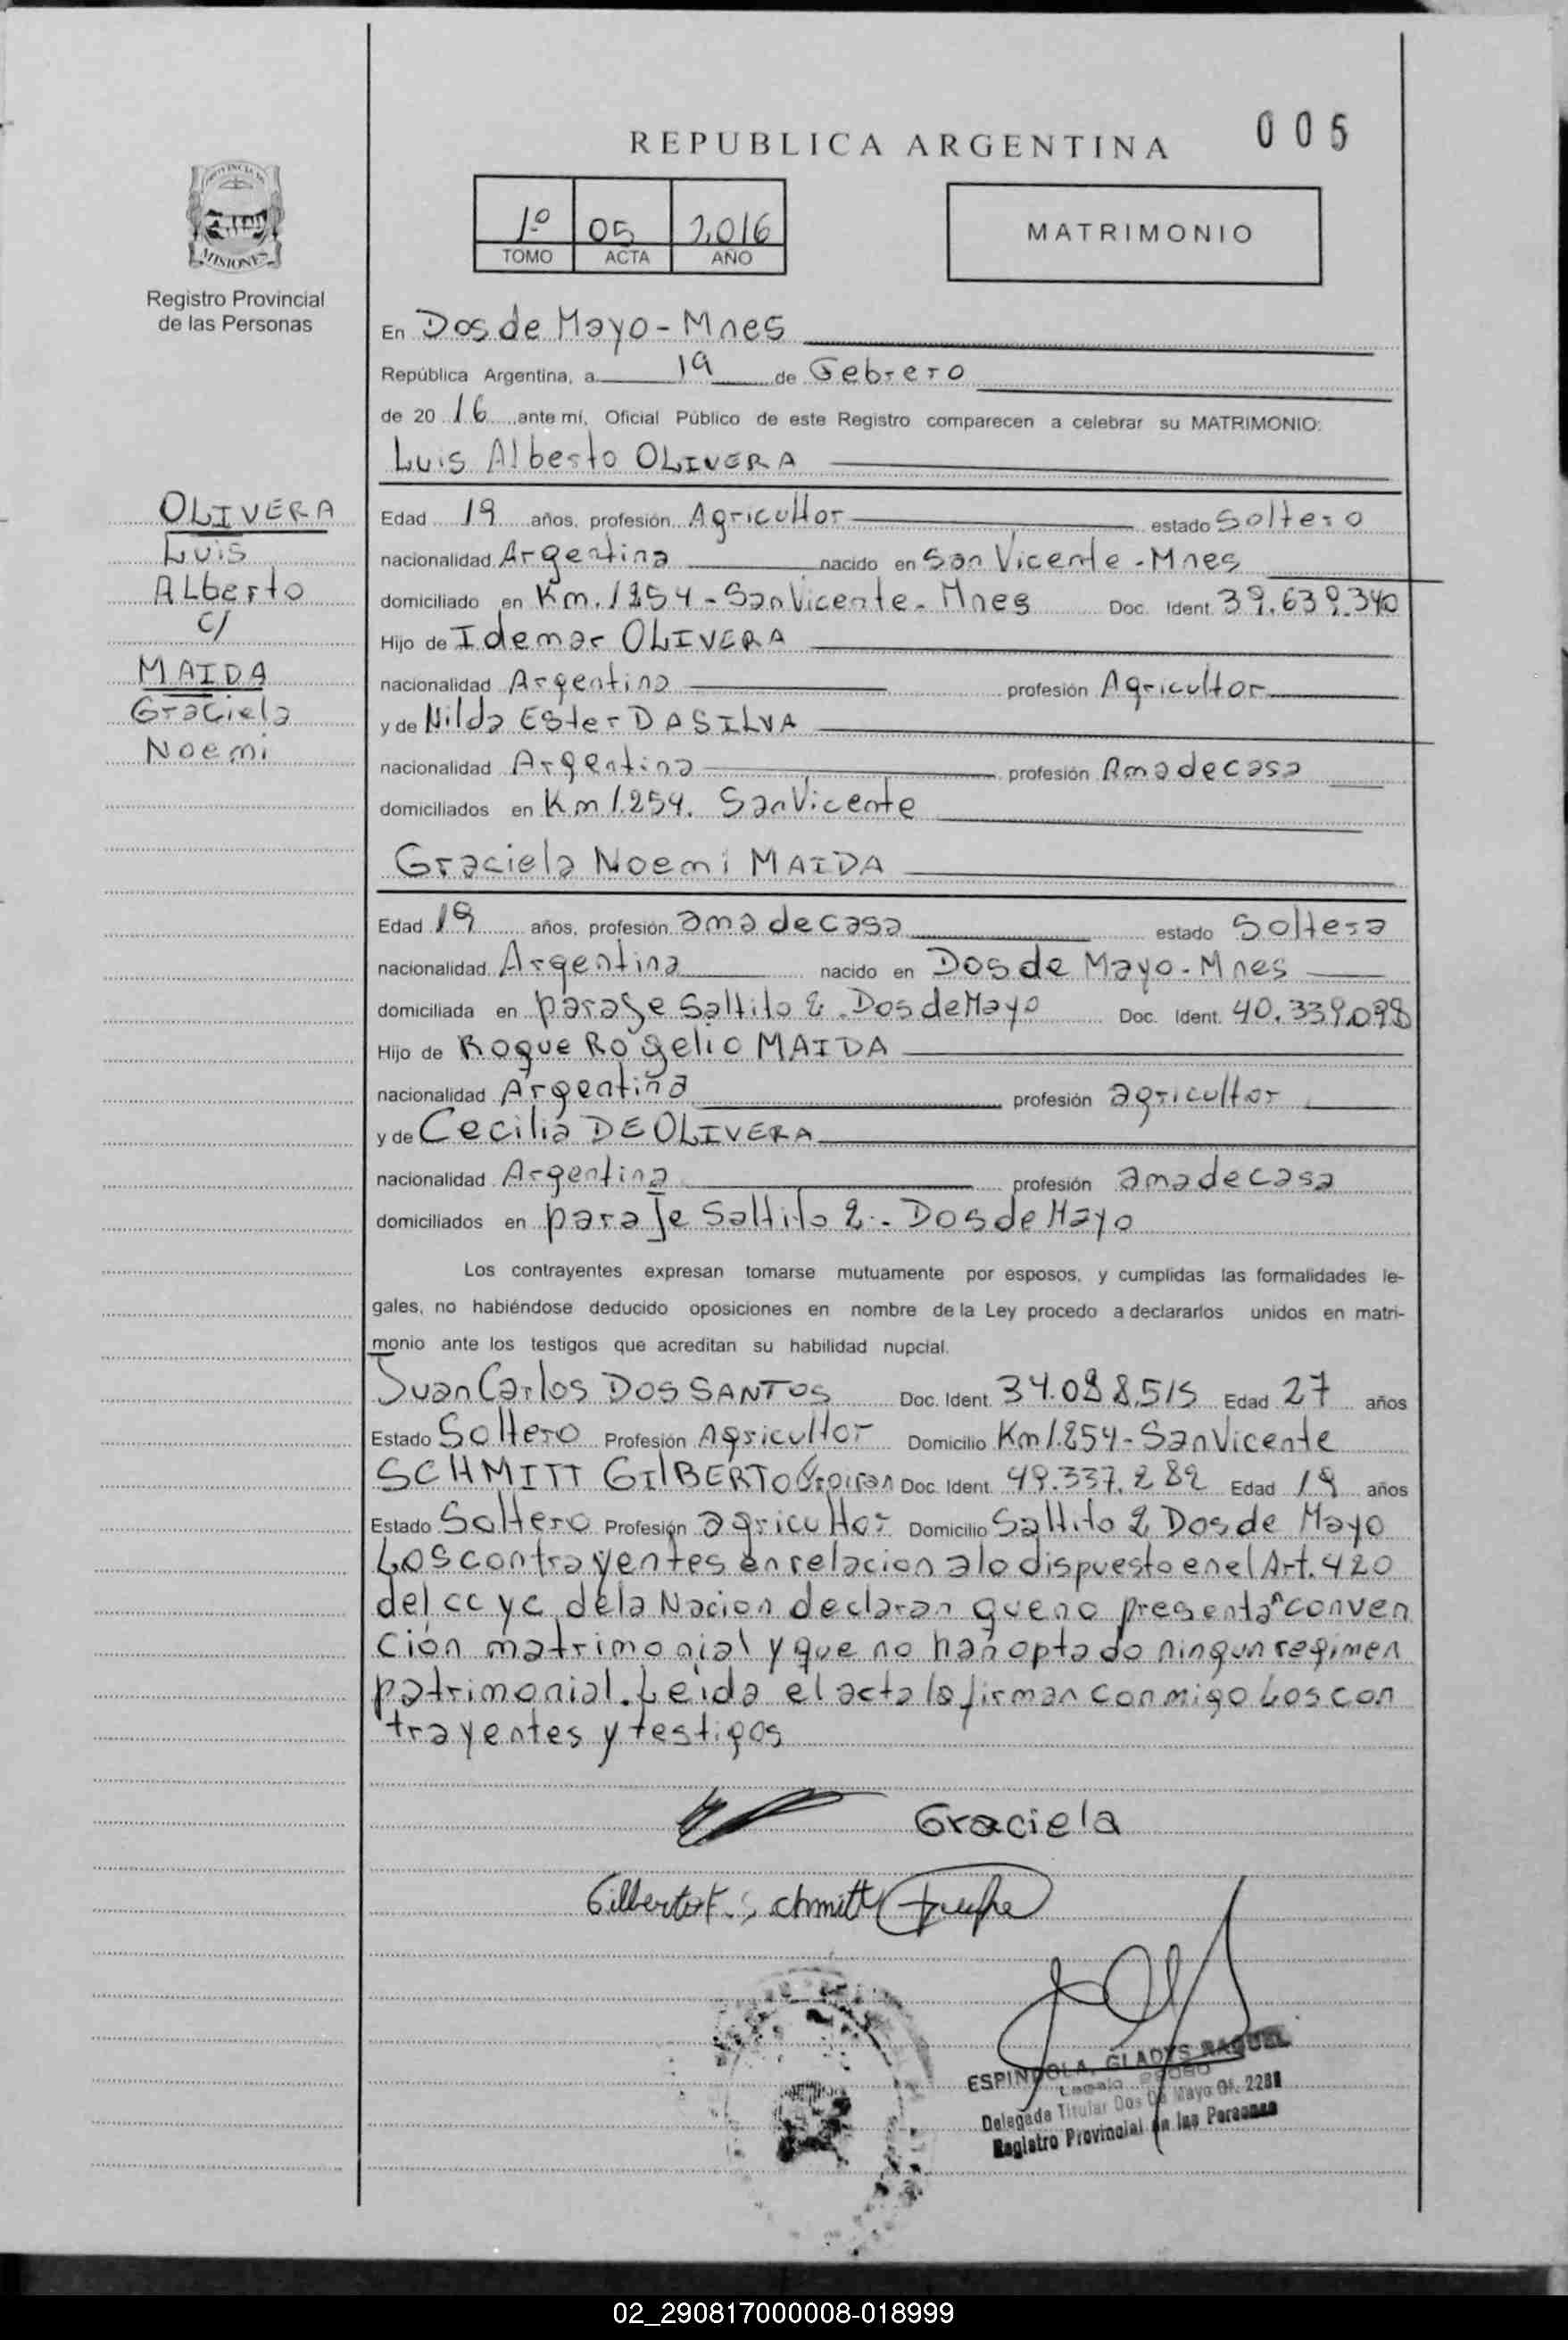 REPUBLICA ARGENTINA
005
PROVINCIA DE
MISIONES
Registro Provincial
de las Personas
1º 05 2016
TOMO ACTA AÑO
MATRIMONIO
En Dos de Mayo - Mnes
República Argentina, a 19 de Febrero
de 20 16 ante mí, Oficial Público de este Registro comparecen a celebrar su MATRIMONIO:
Luis Alberto OLIVERA
OLIVERA
Luis
ALberto
c/
MAIDA
Graciela
Noemi
Edad 19 años, profesión Agricultor estado Soltero
nacionalidad Argentina nacido en San Vicente - Mnes
domiciliado en Km. 1254 - San Vicente - Mnes Doc. Ident. 39.639.340
Hijo de Idemar OLIVERA
nacionalidad Argentina profesión Agricultor
y de Nilda Ester DASILVA
nacionalidad Argentina profesión Amadecasa
domiciliados en Km 1.254. San Vicente
Graciela Noemi MAIDA
Edad 19 años, profesión ama de casa estado Soltera
nacionalidad Argentina nacido en Dos de Mayo - Mnes
domiciliada en paraje Saltito 2 - Dos de Mayo Doc. Ident. 40.339.098
Hijo de Roque Rogelio MAIDA
nacionalidad Argentina profesión agricultor
y de Cecilia DE OLIVERA
nacionalidad Argentina profesión ama de casa
domiciliados en paraje Saltito 2 - Dos de Mayo
Los contrayentes expresan tomarse mutuamente por esposos, y cumplidas las formalidades le-
gales, no habiéndose deducido oposiciones en nombre de la Ley procedo a declararlos unidos en matri-
monio ante los testigos que acreditan su habilidad nupcial.
Juan Carlos DOS SANTOS Doc. Ident. 34.098.515 Edad 27 años
Estado Soltero Profesión Agricultor Domicilio Km 1.254 - San Vicente
SCHMITT GILBERTO Doc. Ident. 49.337.282 Edad 19 años
Estado Soltero Profesión agricultor Domicilio Saltito 2 Dos de Mayo
Los contrayentes en relacion a lo dispuesto en el Art. 420
del cc y c de la Nacion declaran que no presentan conven
ción matrimonial y que no han optado ningun regimen
patrimonial. Leida el acta la firman conmigo Los con
trayentes y testigos
Graciela
Gilberto F. Schmitt
ESPINDOLA, GLADYS RAQUEL
Delegada Titular Dos de Mayo Of. 2281
Registro Provincial de las Personas
02_290817000008-018999